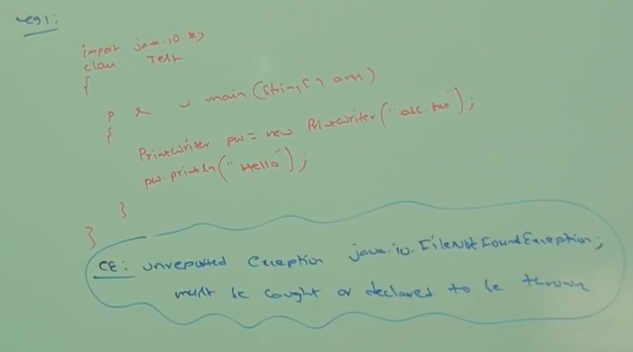 eg1:
import java.io.*;
class Test
{
p s v main(String[] args)
{
PrintWriter pw = new PrintWriter("abc.txt");
pw.println("Hello");
}
}
CE: unreported exception java.io.FileNotFoundException;
must be caught or declared to be thrown